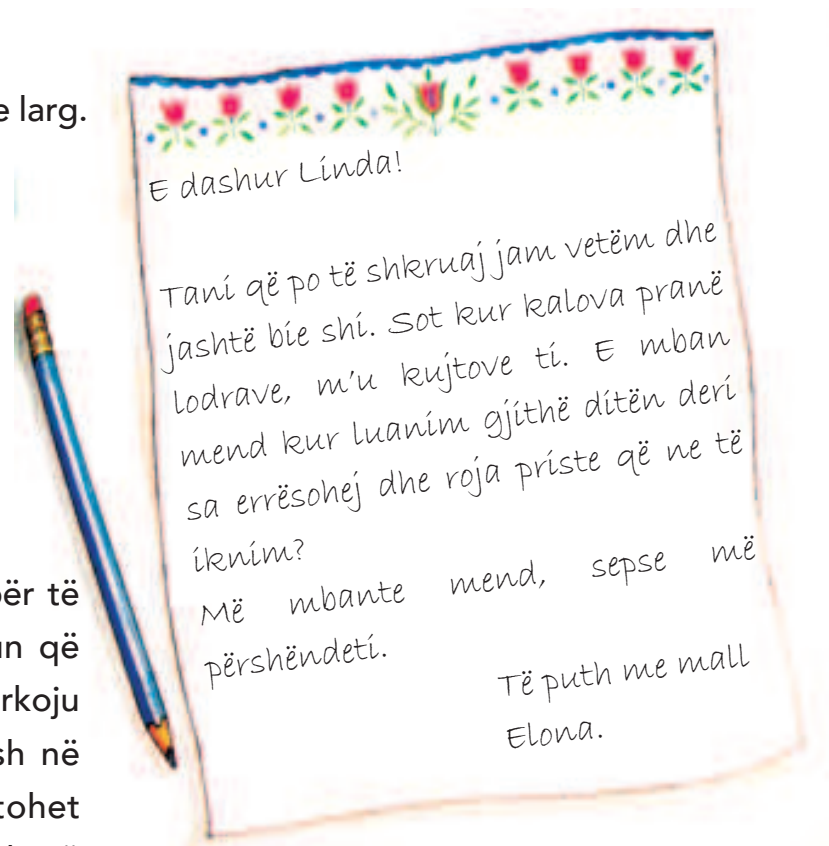 e larg.
E dashur Linda!
Tani që po të shkruaj jam vetëm dhe
jashtë bie shi. Sot kur kalova pranë
lodrave, m'u kujtove ti. E mban
mend kur luanim gjithë ditën deri
sa errësohej dhe roja priste që ne të
iknim?
Më mbante mend, sepse më
përshëndeti.
Të puth me mall
Elona.
për të
që
sh në